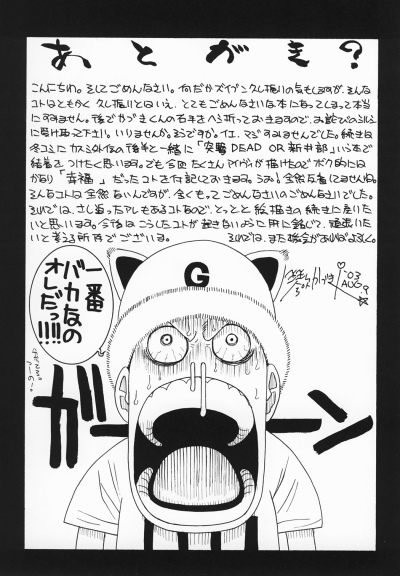 あとがき?
こんにちわ。そしてごめんなさい。何だかズイブン久し振りの気もしますが、そんな
コトはともかく久し振りとはいえ、とてもごめんなさいな本になってしまって本当
にすみません。後でかづきくんの右手をへし折っておきますので、お詫びのしるし
に受け取って下さい。いりませんか。そうですか。イエ、マジすみませんでした。続きは
冬コミに 外伝の後半と一緒に「突撃 DEAD OR 新中部」いう本で
結着をつけたく思います。でも今回 たくさん が描けるのでボク的には
かなり「幸福」だったコトを付記しておきます。うお!全然反省してませんね。
そんなコトは全然ないんですが、全くもってごめんなさいのごめんなさいでした。
それでは、さし迫ったアレもあるコトなので、とっとと絵描きの続きに戻りたい
と思います。今後はこうしたコトが起きないように肝に銘じて、頑張りた
いと考える所存でございます。 それでは、また機会があればよろしく。
'03
AUG.
一番
バカなの
オレだっ!!!!
G
ガーーン